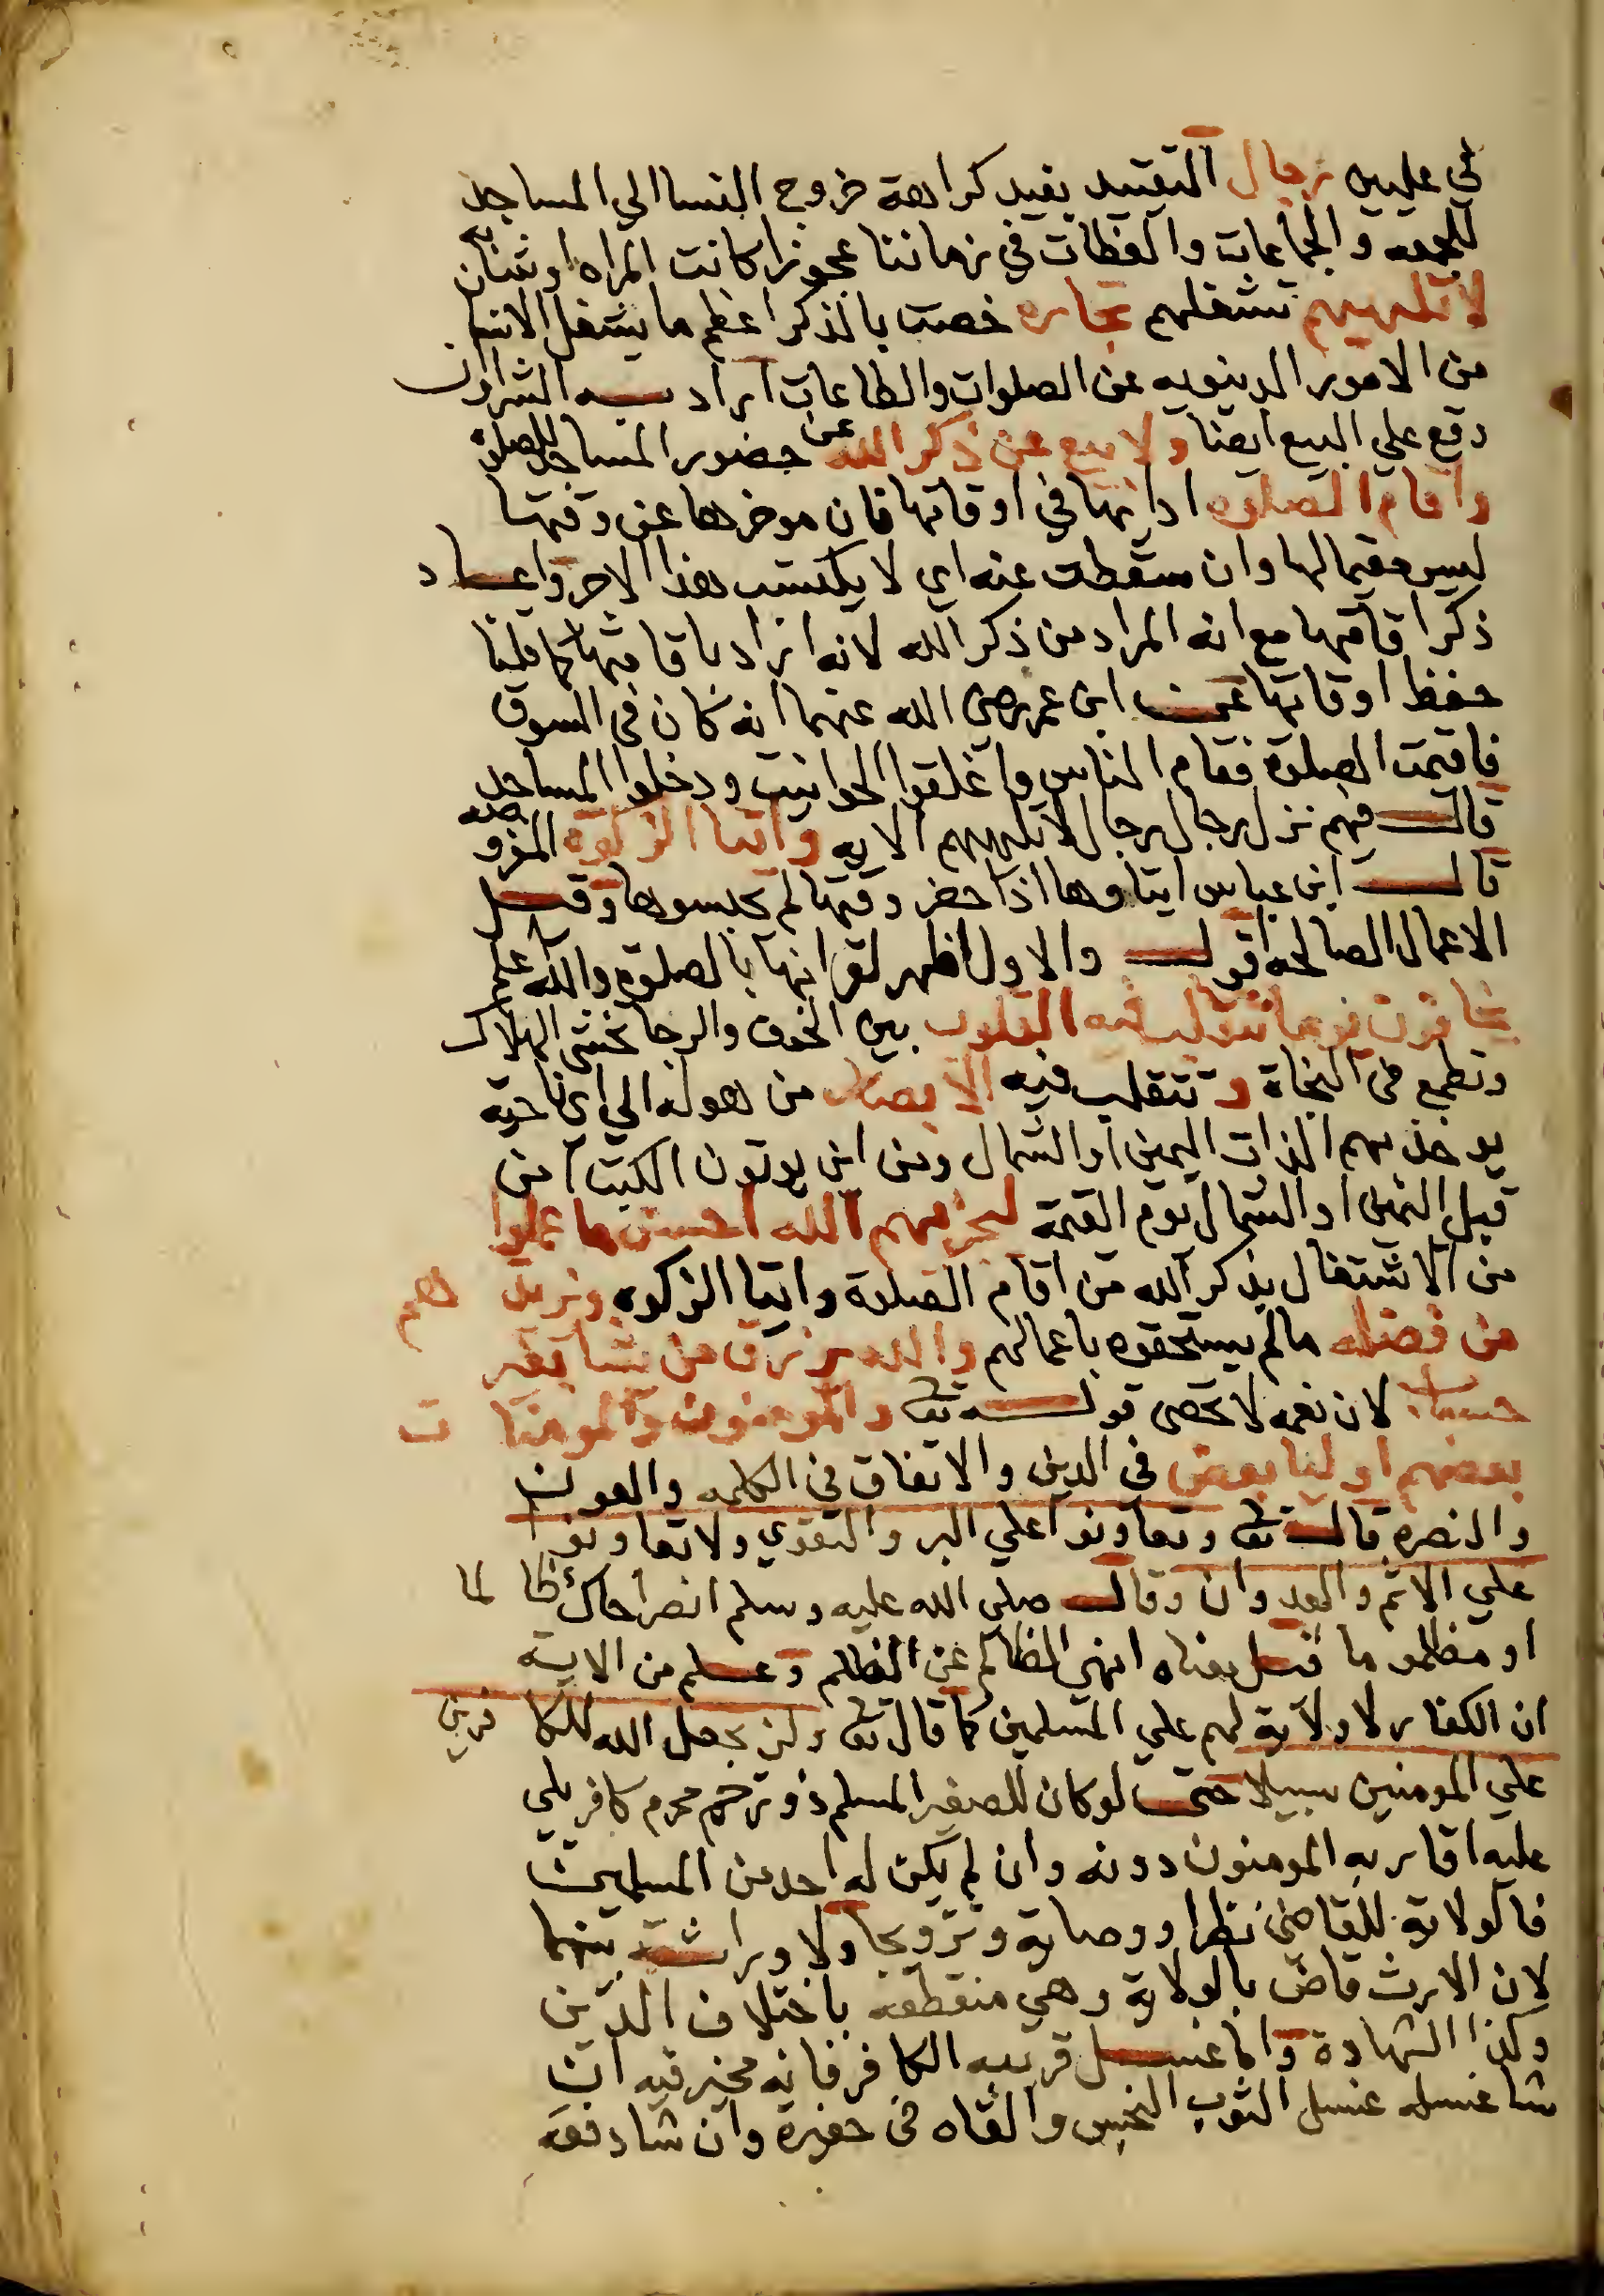 في عليين رجال التقييد يفيد كراهة خروج النسا الي المساجد
للجمعه والجماعات والعظات في زماننا عجوزا كانت المراه او شابه
لا تلهيهم تشغلهم تجاره خصت بالذكر اعظم ما يشغل الانسا
من الامور الدينويه عن الصلوات والطاعات اراد به الشراوان
وقع علي البيع ايضا ولا بيع عن ذكر الله عن حضور المساجد للصلوة
واقام الصلوه ادايها في اوقاتها فان موخرها عن وقتها
ليس مقيما لها وان سقطت عنه اي لا يكتسب هذا الاجر واعاد
ذكر اقامتها مع انه المراد من ذكر الله لانه اراد باقامتها كما قلنا
حفظ اوقاتها عن ابن عمر رضي الله عنهما انه كان في السوق
فاقيمت الصلوة فقام الناس واغلقوا الحوانيت ودخلوا المساجد
قال فيهم نزل رجال رجال لا تلهيهم الايه وايتا الزكوة المفروضه
قال ابن عباس ايتاوها اذا حضر وقتها لم يحبسوها وقيل
الاعمال الصالحه اقول والاول اظهر لقرانها بالصلوه والله اعلم
يخافون يوما تتقلب فيه القلوب بين الخوف والرجا تخشي الهلاك
وتطمع في النجاة وتتقلب فيه الابصار من هوله الي اي ناحية
يوخذ بهم الذات اليمين او الشمال ومن اين يوتون الكتب امن
قبل اليمين او الشمال يوم القيمة ليجزيهم الله احسن ما عملوا
من الاشتغال بذكر الله من اقام الصلوة وايتا الزكوه ويزيد هم
من فضله ما لم يستحقوه باعمالهم والله يرزق من يشا بغير
حساب لان نعمه لا تحصي قوله تعا والمومنون والمومنا ت
بعضهم اوليا بعض في الدين والاتفاق في الكلمه والعون
والنصره قال تعا وتعاونوا علي البر والتقوي ولا تعاونوا
علي الاثم والعدوان وقال صلي الله عليه وسلم انصر اخاك ظا لما
او مظلوما قيل معناه انهي الظالم عن الظلم وعلم من الاية
ان الكفار لا ولاية لهم علي المسلمين كما قال تعا ولن يجعل الله للكا فرين
علي المومنين سبيلا حتي لو كان للصغير المسلم ذو رحم محرم كافر يلي
عليه اقاربه المومنون دونه وان لم يكن له احد من المسلمين
فالولاية للقاضي نظرا ووصاية وتزويجا ولا وراثة بينهما
لان الارث قاض بالولاية وهي منقطعه باختلاف الدين
وكذا الشهادة واما غسل قريبه الكافر فانه مخير فيه ان
شا غسله غسل الثوب النجس والقاه في حفيرة وان شا دفعه